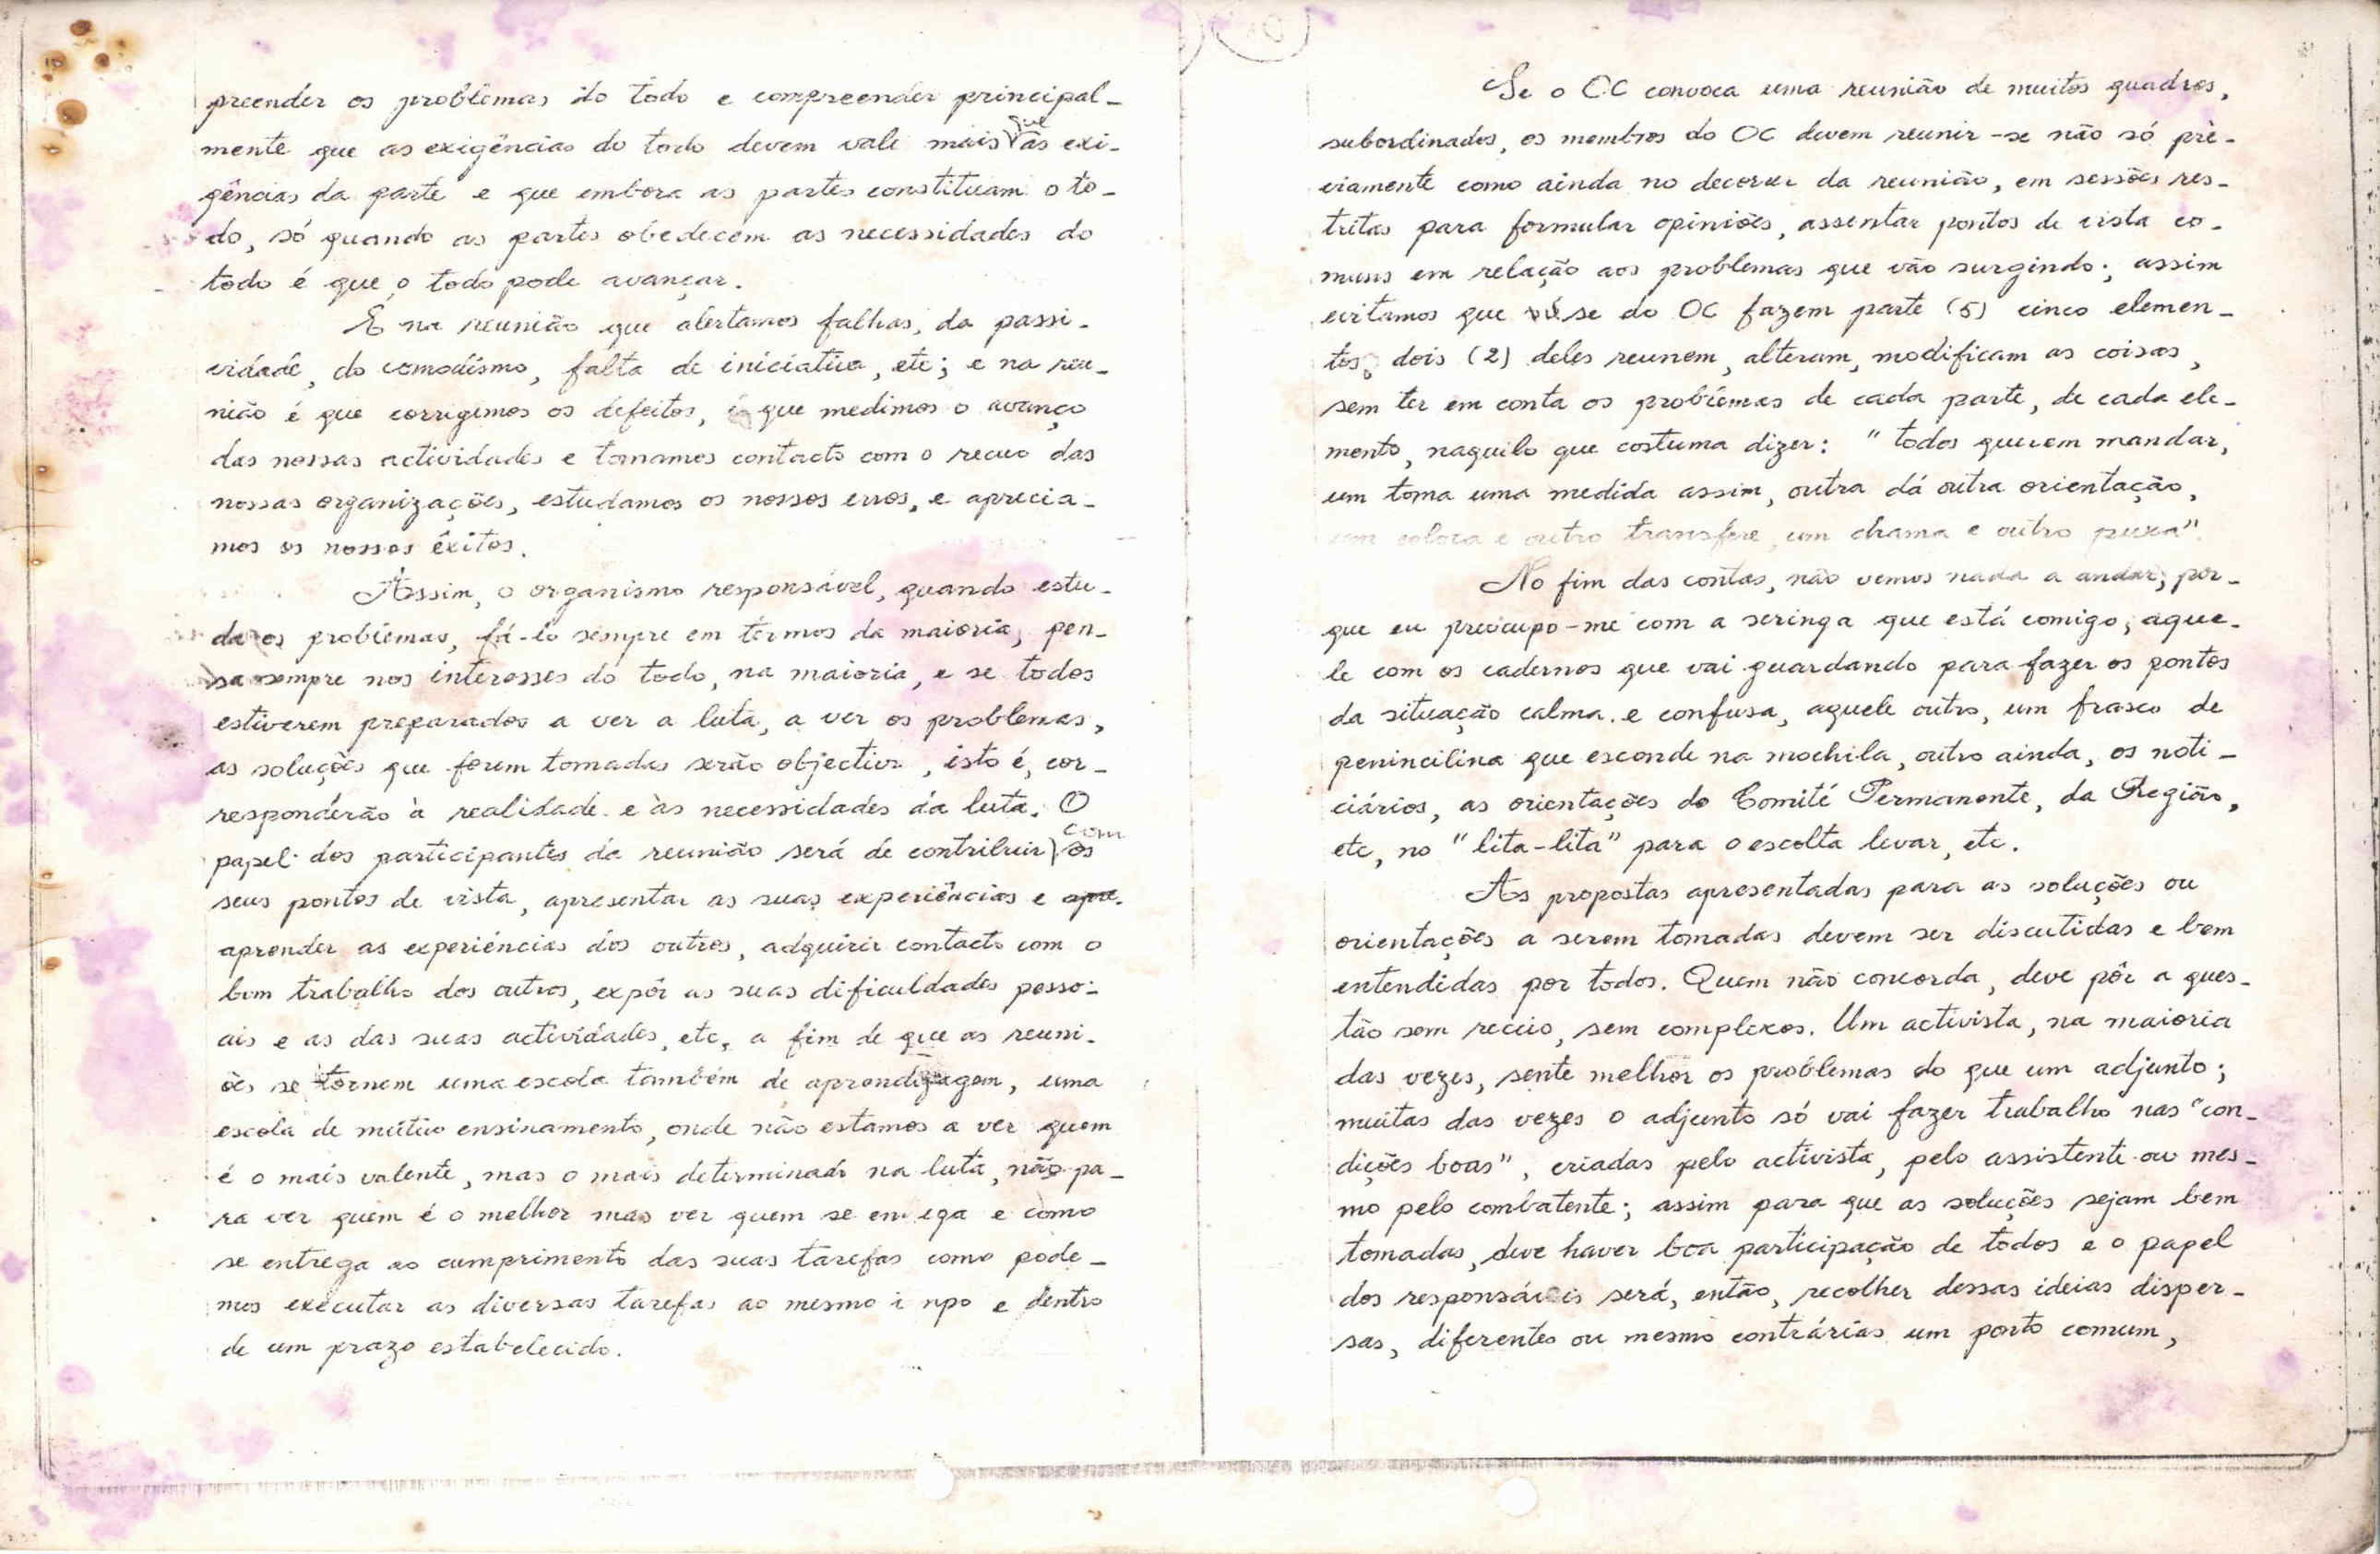 preender os problemas do todo e compreender principal-
mente que as exigências do todo devem vale mais que as exi-
gências da parte e que embora as partes constituam o to-
do, só quando as partes obedecem as necessidades do
todo é que o todo pode avançar.
É na reunião que alertamos falhas, da passi-
vidade, do comodismo, falta de iniciativa, etc; e na reu-
nião é que corrigimos os defeitos, é que medimos o avanço
das nossas actividades e tomamos contacto com o recuo das
nossas organizações, estudamos os nossos erros, e aprecia-
mos os nossos êxitos.
Assim, o organismo responsável, quando estu-
da os problemas, fá-lo sempre em termos da maioria, pen-
sa sempre nos interesses do todo, na maioria, e se todos
estiverem preparados a ver a luta, a ver os problemas,
as soluções que forem tomadas serão objectiva, isto é, cor-
responderão à realidade e às necessidades da luta. O
papel dos participantes da reunião será de contribuir com os
seus pontos de vista, apresentar as suas experiências e apre-
aprender as experiências dos outros, adquirir contacto com o
bom trabalho dos outros, expôr as suas dificuldades pesso-
ais e as das suas actividades, etc, a fim de que as reuni-
ões se tornem uma escola também de aprendizagem, uma
escola de mútuo ensinamento, onde não estamos a ver quem
é o mais valente, mas o mais determinado na luta, não pa-
ra ver quem é o melhor mas ver quem se en ega e como
se entrega ao cumprimento das suas tarefas como pode-
mos executar as diversas tarefas ao mesmo mpo e dentro
de um prazo estabelecido.
10
Se o OC convoca uma reunião de muitos quadros,
subordinados, os membros do OC devem reunir-se não só prè-
viamente como ainda no decorrer da reunião, em sessões res-
tritas para formular opiniões, assentar pontos de vista co-
muns em relação aos problemas que vão surgindo; assim
evitamos que se do OC fazem parte (5) cinco elemen-
tos, dois (2) deles reunem, alteram, modificam as coisas,
sem ter em conta os problemas de cada parte, de cada ele-
mento, naquilo que costuma dizer: "todos querem mandar,
um toma uma medida assim, outra dá outra orientação,
um coloca e outro transfere, um chama e outro puxa".
No fim das contas, não vemos nada a andar; por-
que eu preocupo-me com a seringa que está comigo; aque-
le com os cadernos que vai guardando para fazer os pontos
da situação calma e confusa, aquele outro, um frasco de
penincilina que esconde na mochila, outro ainda, os noti-
ciários, as orientações do Comité Permanente, da Região,
etc, no "lita-lita" para o escolta levar, etc.
As propostas apresentadas para as soluções ou
orientações a serem tomadas devem ser discutidas e bem
entendidas por todos. Quem não concorda, deve pôr a ques-
tão sem receio, sem complexos. Um activista, na maioria
das vezes, sente melhor os problemas do que um adjunto;
muitas das vezes o adjunto só vai fazer trabalho nas "con-
dições boas", criadas pelo activista, pelo assistente ou mes-
mo pelo combatente; assim para que as soluções sejam bem
tomadas, deve haver boa participação de todos e o papel
dos responsáveis será, então, recolher dessas ideias disper-
sas, diferentes ou mesmo contrárias um ponto comum,